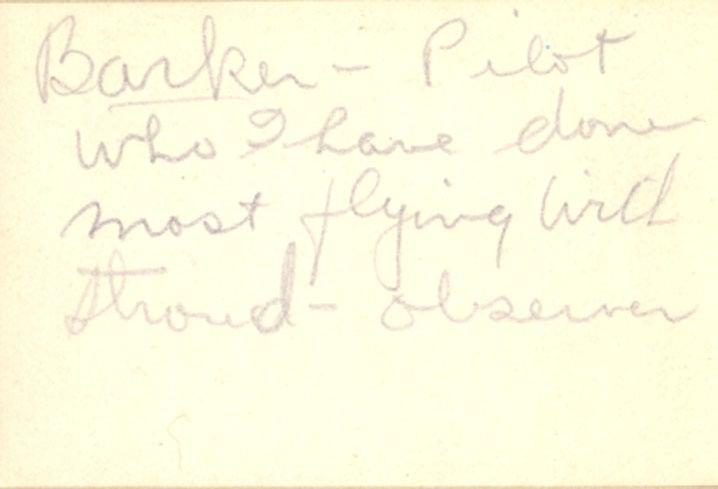 Barker - Pilot
who I have done
most flying with
Stroud - observer